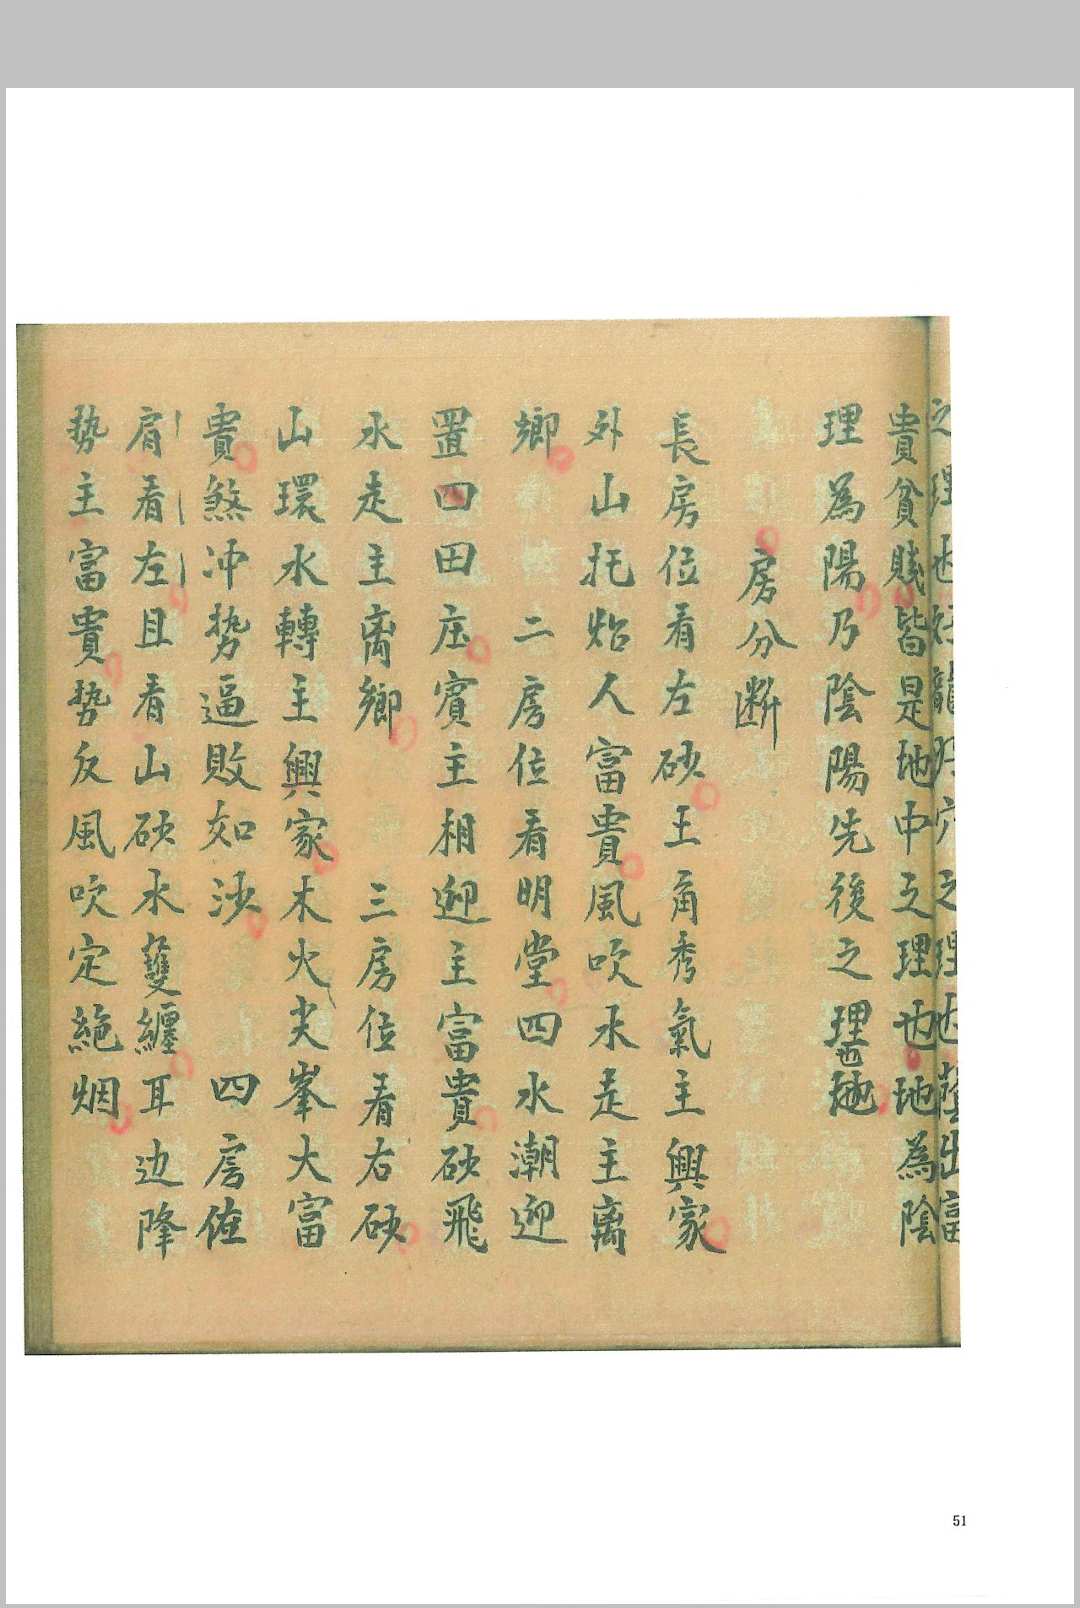 之理也好龍好穴之理也蔭出富
貴貧賤皆是地中之理也地為陰
理為陽乃陰陽先後之理也趣
房分断
長房位看左砂王角秀氣主興家
外山托始人富貴風吹水走主离
鄉 二房位看明堂四水潮迎
置四田庄賓主相迎主富貴砂飛
水走主离鄉 三房位看右砂
山環水轉主興家木火尖峯大富
貴煞冲势逼敗如沙 四房位
肩看左且看山砂水雙纏耳边降
势主富貴势反風吹定絶烟
51